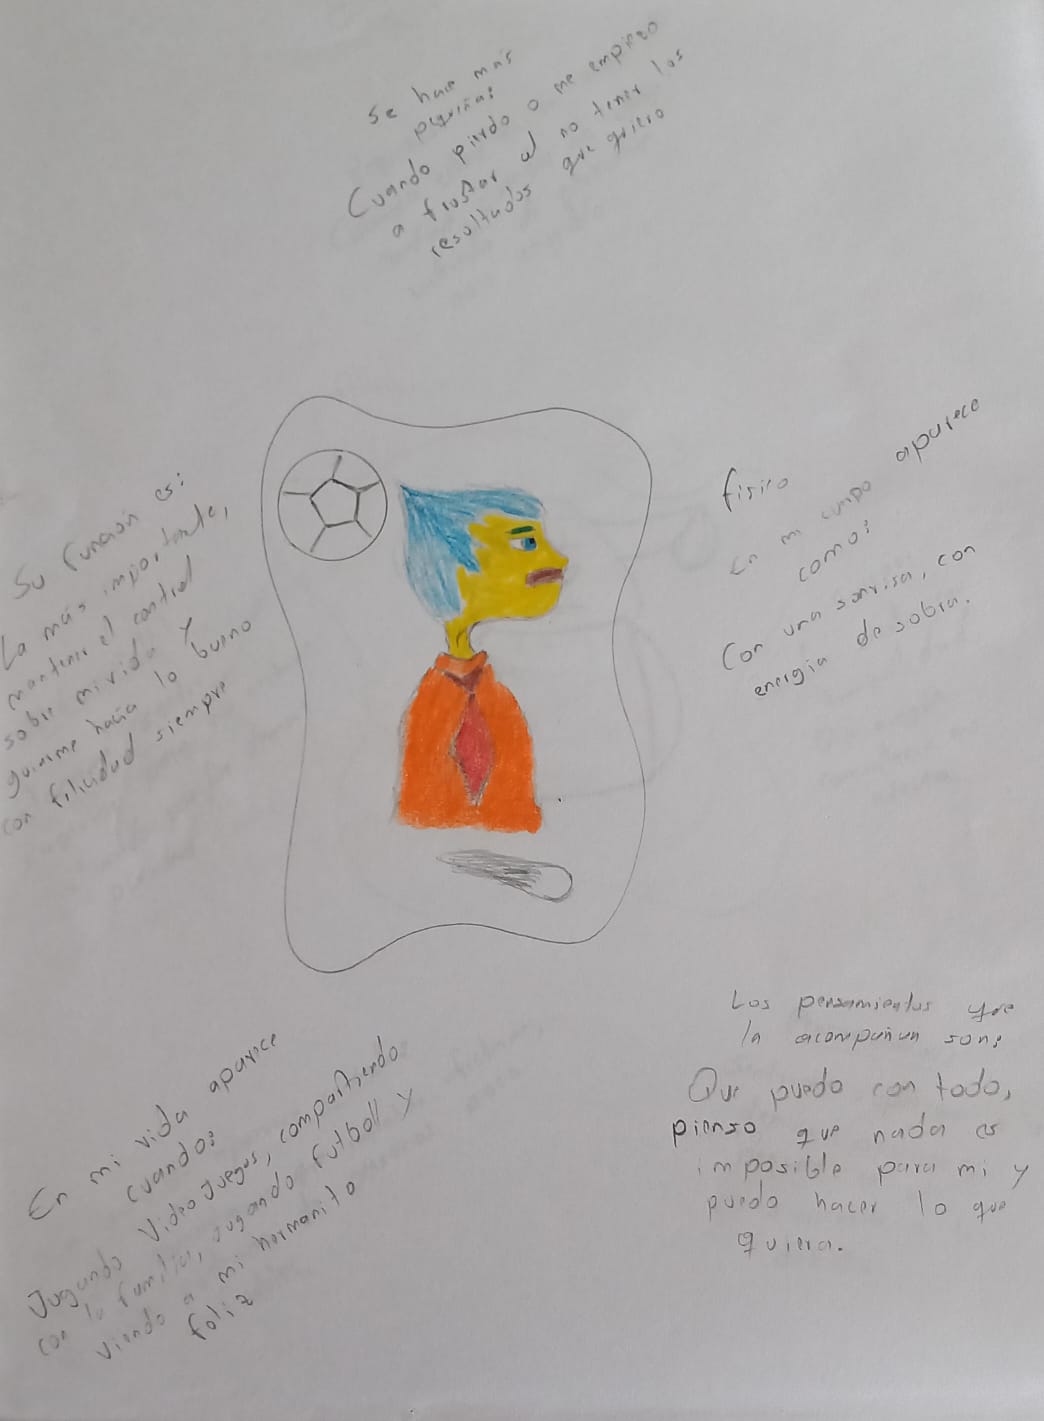 Se hace más
pequeña:
Cuando pierdo o me empiezo
a frustar al no tener los
resultados que quiero
Su función es:
La más importante,
mantener el control
sobre mi vida y
guiarme hacia lo bueno
con felicidad siempre
físico
En mi cuerpo aparece
como:
Con una sonrisa, con
energia de sobra.
En mi vida aparece
cuando:
Jugando videojuegos, compartiendo
con la familia, jugando futboll y
viendo a mi hermanito
feliz
Los pensamientos que
la acompañan son:
Que puedo con todo,
pienso que nada es
imposible para mi y
puedo hacer lo que
quiera.